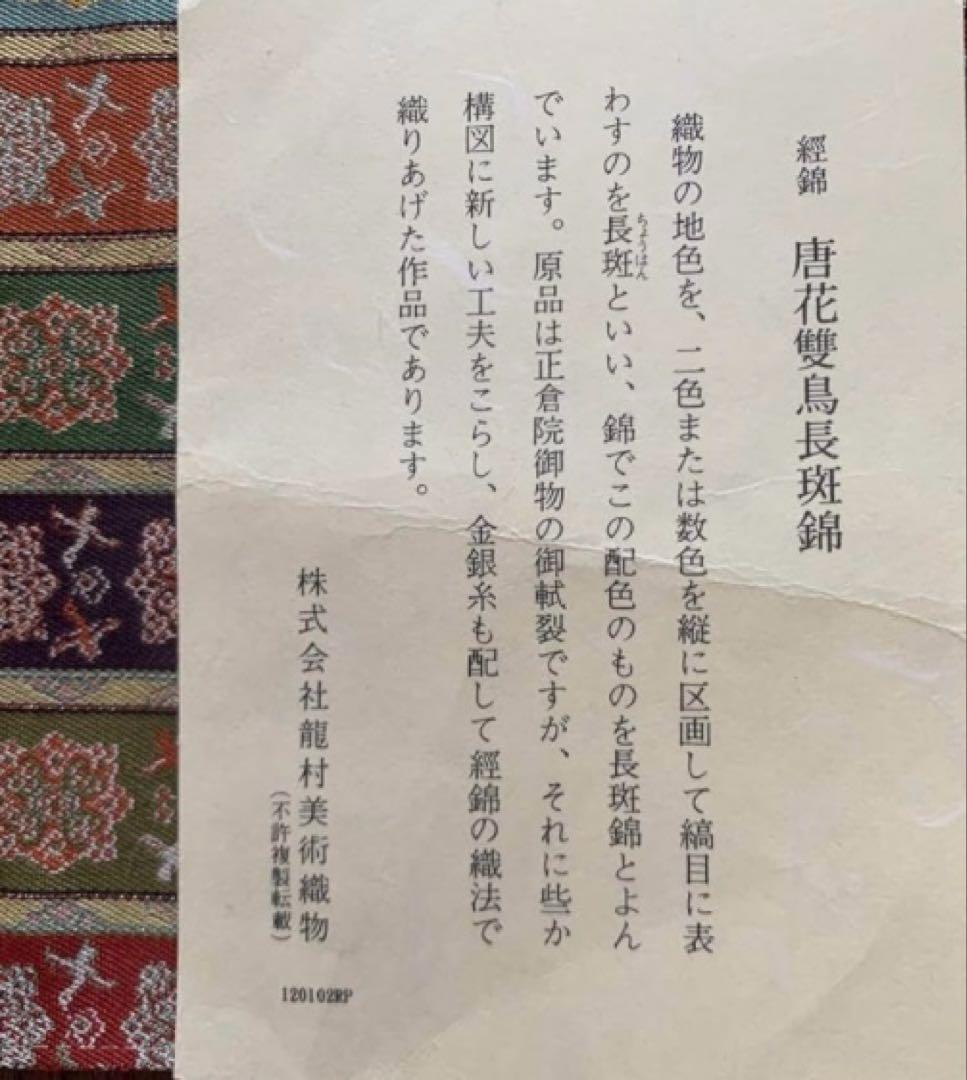 經錦　唐花雙鳥長斑錦
織物の地色を、二色または数色を縦に区画して縞目に表
わすのを長斑といい、錦でこの配色のものを長斑錦とよん
ちょうはん
でいます。原品は正倉院御物の御軾裂ですが、それに些か
構図に新しい工夫をこらし、金銀糸も配して經錦の織法で
織りあげた作品であります。
株式会社龍村美術織物
（不許複製転載）
120102RP